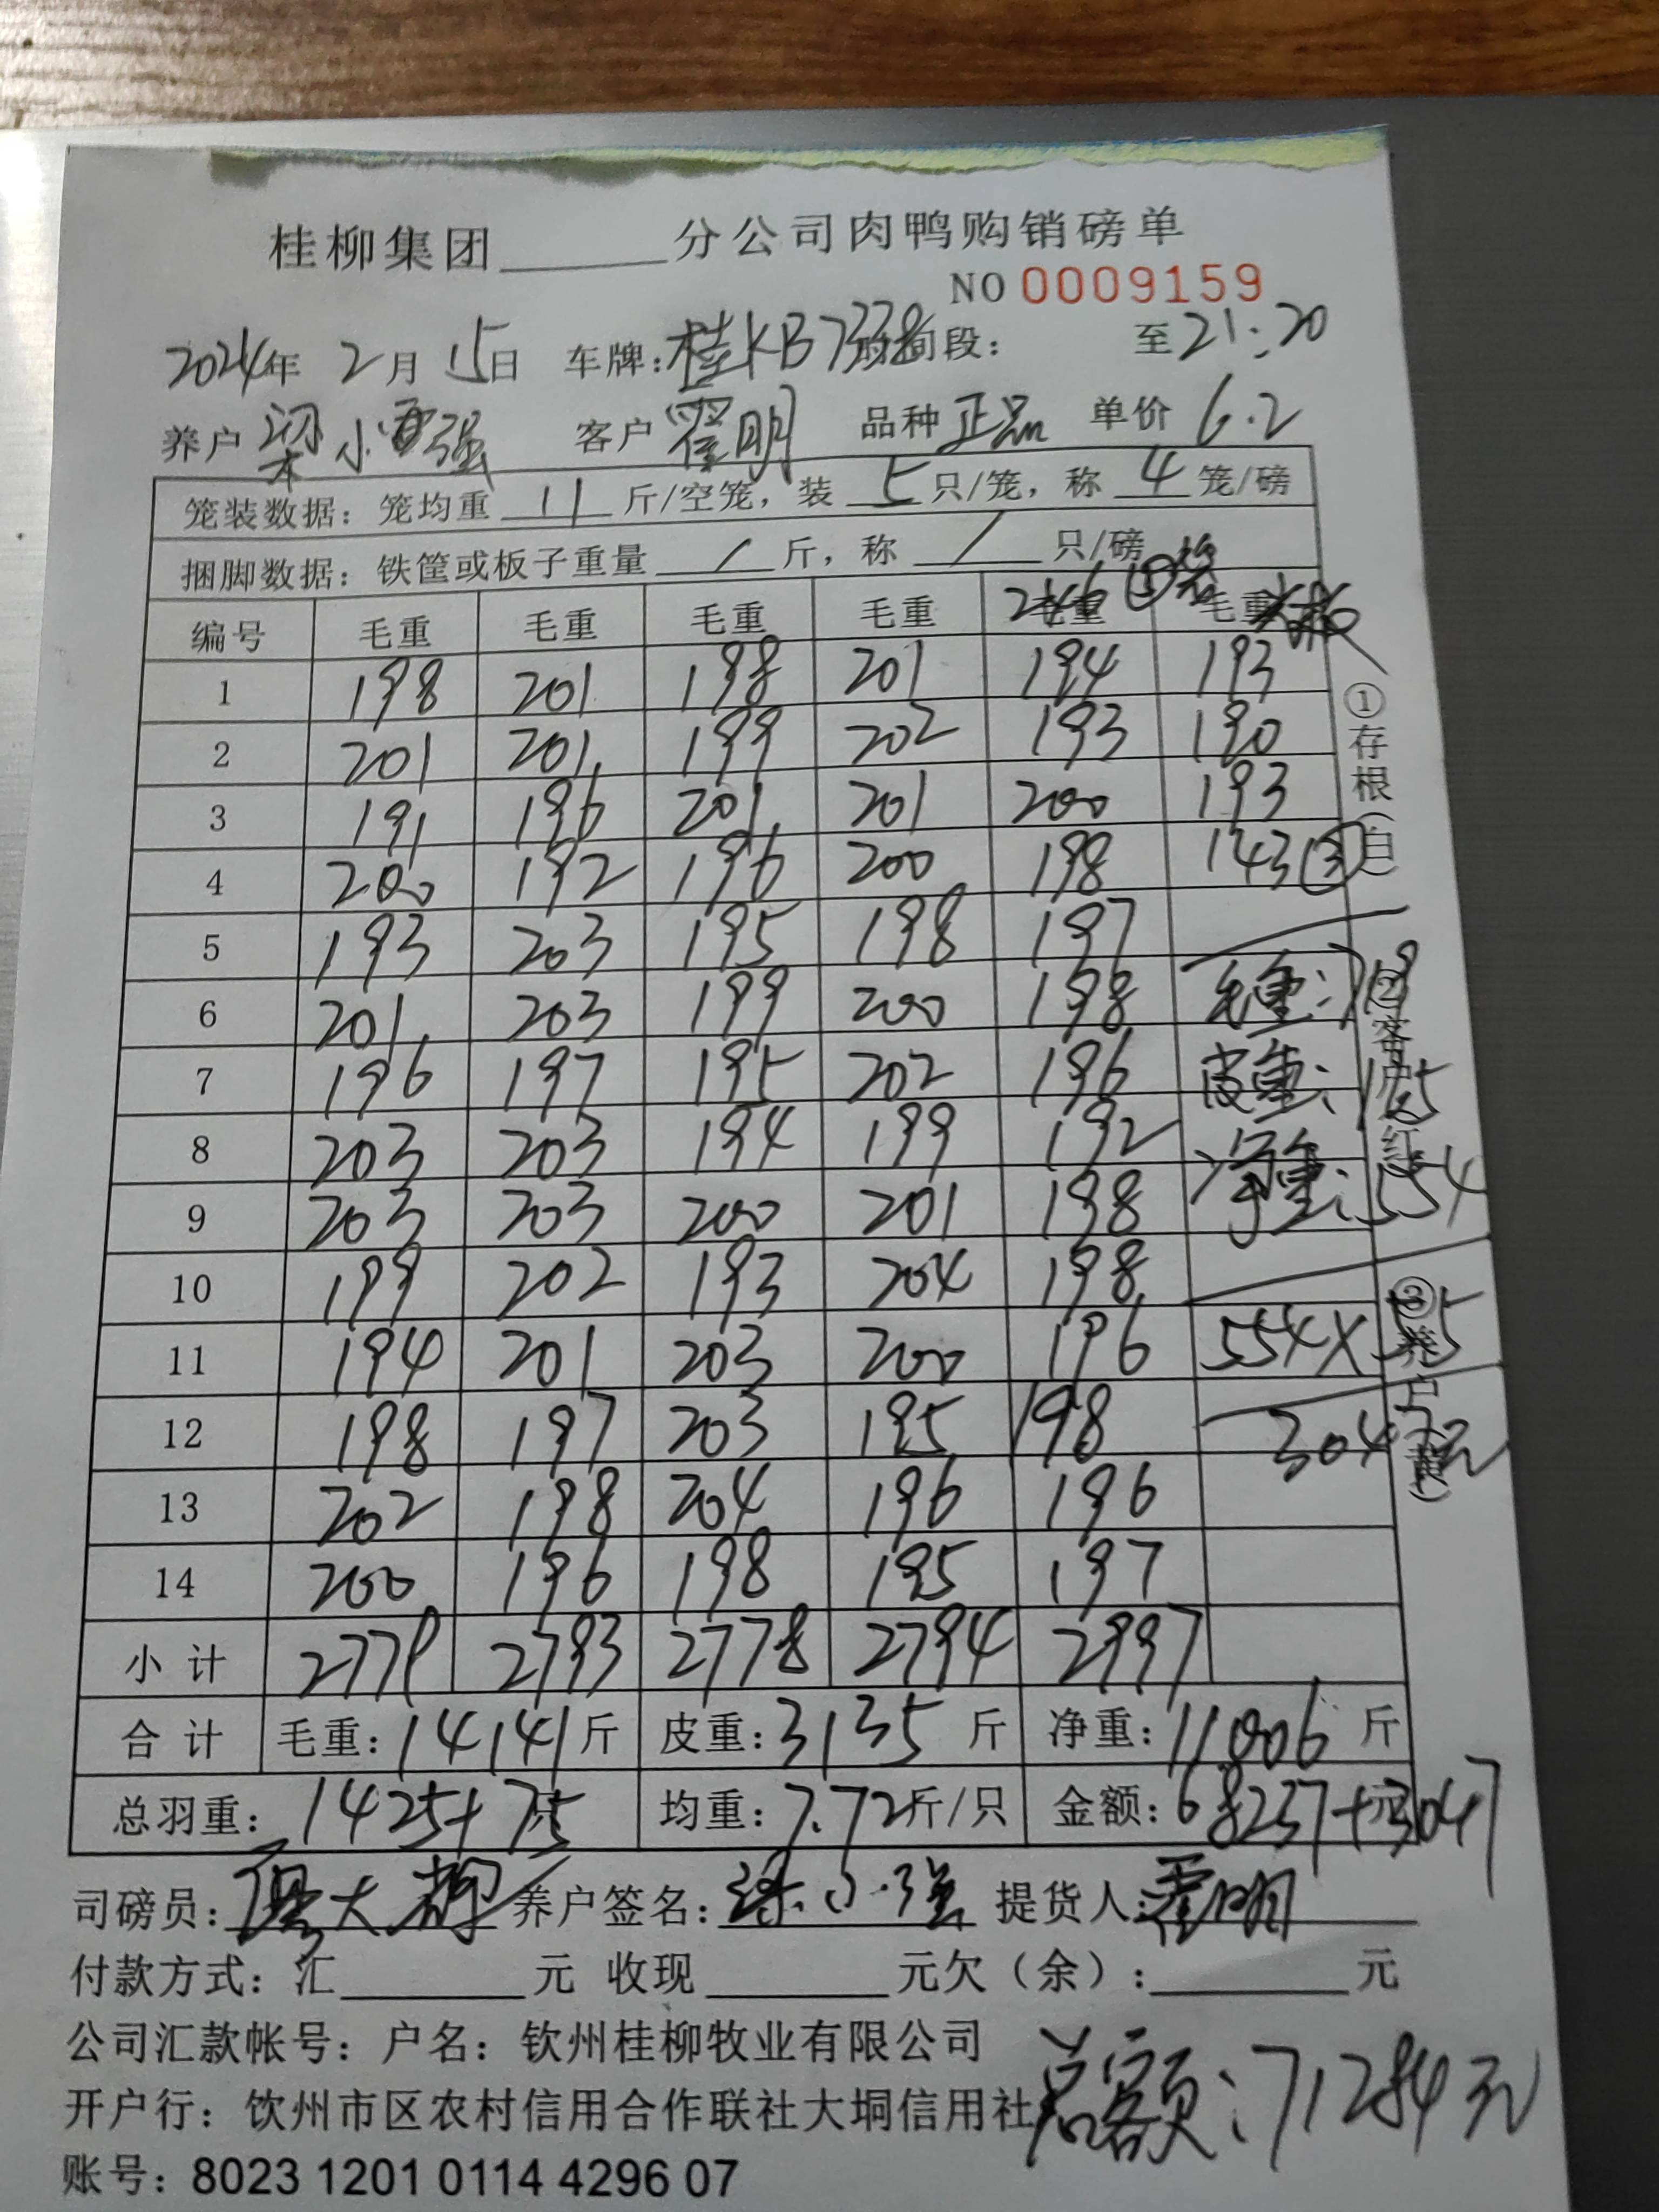 桂柳集团______分公司肉鸭购销磅单
NO 0009159
2024年 2月 15日 车牌:桂KB 时间段: 至21:20
养户 梁小强 客户 霍明 品种 正品 单价 6.2
笼装数据: 笼均重 11 斤/空笼, 装 5 只/笼, 称 4 笼/磅
捆脚数据: 铁筐或板子重量 / 斤, 称 / 只/磅
246 ⑤笼
编号 毛重 毛重 毛重 毛重 毛重 毛重
1 198 201 198 201 194 193
2 201 201 199 202 193 190
3 191 196 201 201 200 193
4 200 192 196 200 198 143③
5 193 203 195 198 197
6 201 203 199 200 198 毛重:719
7 196 197 195 202 196 皮重:165
8 203 203 194 199 192
9 203 203 200 201 198 净重:554
10 199 202 193 204 198
11 194 201 203 200 196 554×5.5
12 198 197 203 195 198 3047元
13 202 198 204 196 196
14 200 196 198 195 197
小计 2779 2793 2778 2794 2997
合计 毛重:14141斤 皮重:3135 斤 净重:11006 斤
总羽重: 1425+75 均重:7.72斤/只 金额:68237+3047元
①存根(白)
②客户(红)
③养户(黄)
司磅员: 养户签名:梁小强 提货人:霍明
付款方式: 汇______元 收现______元欠(余):______元
公司汇款帐号: 户名: 钦州桂柳牧业有限公司
开户行: 钦州市区农村信用合作联社大垌信用社
总额:71284元
账号: 8023 1201 0114 4296 07